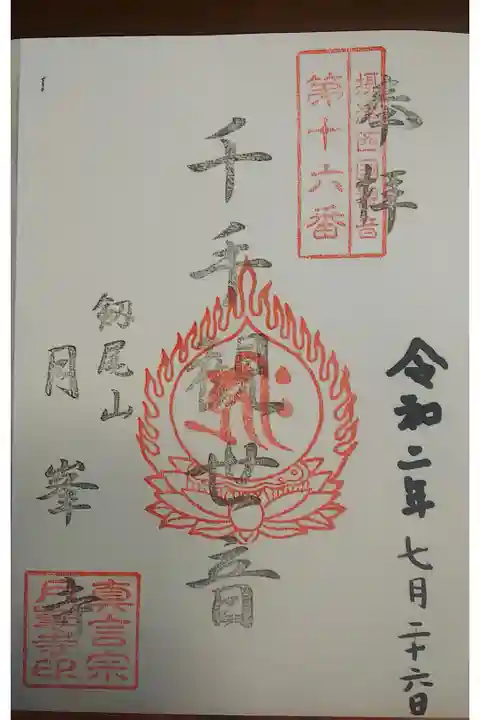 奉拝
摂津西国観音
第十六番
令和二年七月二十六日
千手観世音
釼尾山
月峯寺
真言宗
月峯寺印